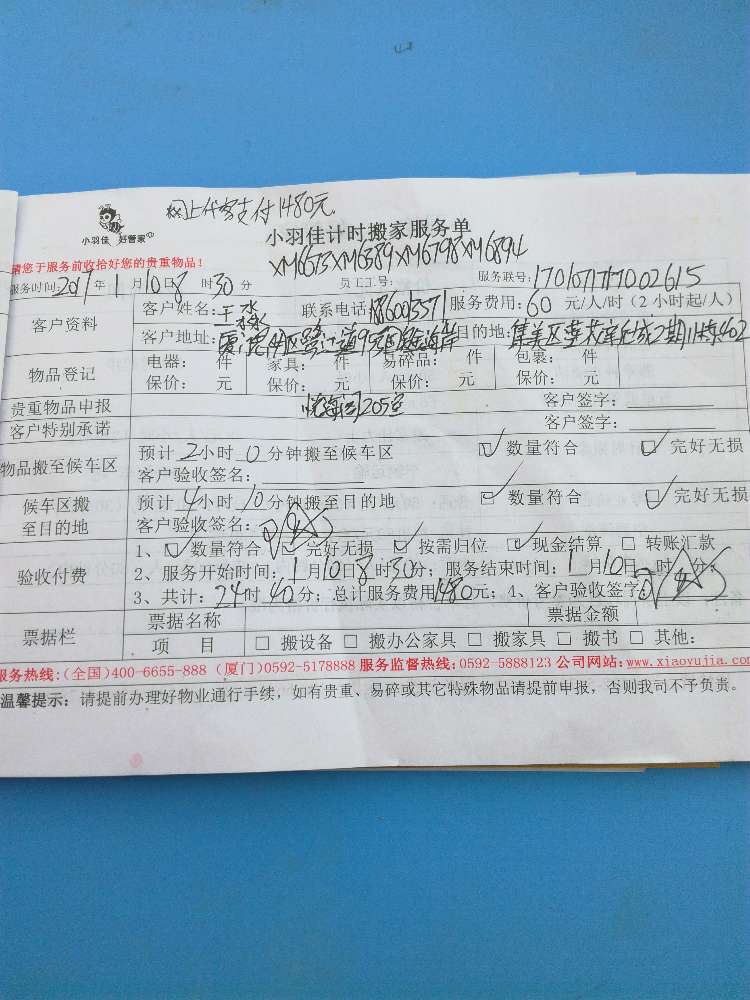 网上代客支付1480元.
小羽佳 好管家
小羽佳计时搬家服务单
XM6673XM6389XM6798XM6894
请您于服务前收拾好您的贵重物品!
服务时间:2017年1月10日8时30分 员工工号: 服务联号:1701071717002615
客户资料 客户姓名:王 联系电话: 服务费用:60元/人/时(2小时起/人)
客户地址: 目的地:集美区 2期11栋402
物品登记 电器: 件 家具: 件 易碎品: 件 包裹: 件
保价: 元 保价: 元 保价: 元 保价: 元
贵重物品申报 205室 客户签字:
客户特别承诺 客户签字:
物品搬至候车区 预计2小时0分钟搬至候车区 ☑数量符合 ☑完好无损
客户验收签名:
候车区搬至目的地 预计4小时10分钟搬至目的地 ☑数量符合 ☑完好无损
客户验收签名:
验收付费 1、☑数量符合 ☑完好无损 ☑按需归位 ☑现金结算 □转账汇款
2、服务开始时间:1月10日8时30分;服务结束时间:1月10日 时 分;
3、共计:24时40分;总计服务费用1480元;4、客户验收签字:
票据栏 票据名称 票据金额
项 目 □搬设备 □搬办公家具 □搬家具 □搬书 □其他:
服务热线:(全国)400-6655-888 (厦门)0592-5178888 服务监督热线:0592-5888123 公司网站:www.xiaoyujia.com
温馨提示:请提前办理好物业通行手续,如有贵重、易碎或其它特殊物品请提前申报,否则我司不予负责。